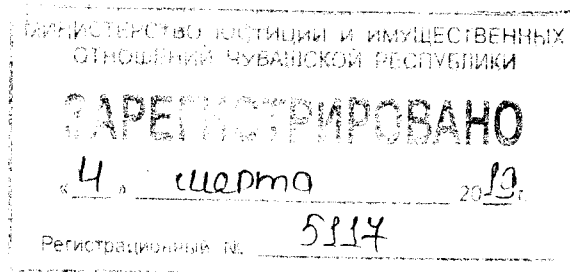 МИНИСТЕРСТВО ЮСТИЦИИ И ИМУЩЕСТВЕННЫХ
ОТНОШЕНИЙ ЧУВАШСКОЙ РЕСПУБЛИКИ
ЗАРЕГИСТРИРОВАНО
«4» марта 2019г.
Регистрационный № 5117